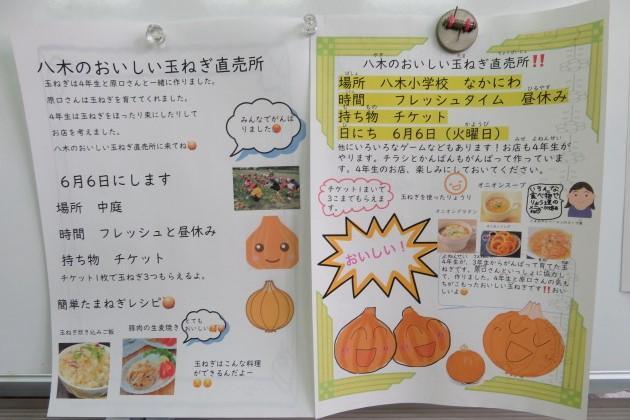 八木のおいしい玉ねぎ直売所
玉ねぎは4年生と原口さんと一緒に作りました。
原口さんは玉ねぎを育ててくれました。
4年生は玉ねぎをほったり束にしたりして
お店を考えました。
八木のおいしい玉ねぎ直売所に来てね
みんなでがんば
りました
6月6日にします
場所 中庭
時間 フレッシュと昼休み
持ち物 チケット
チケット1枚で玉ねぎ3つもらえるよ。
簡単たまねぎレシピ
玉ねぎ炊き込みご飯
豚肉の生麦焼き
とても
おいしい
玉ねぎはこんな料理
ができるんだよー
八木のおいしい玉ねぎ直売所!!
場所 八木小学校 なかにわ
時間 フレッシュタイム 昼休み
持ち物 チケット
日にち 6月6日(火曜日)
他にいろいろなゲームなどもあります!お店も4年生が
やります。チラシとかんばんもがんばって作っていま
す。4年生のお店、楽しみにしておいてください。
チケット1まいで
3こまでもらえま
す。
玉ねぎを使ったりょうり
オニオンスープ
オニオングラタン
おいしい!
4年生が、3年生からがんばって育てた玉
ねぎです。原口さんといっしょに協力し
て、作りました。4年生と原口さんの気も
ちがこもったおいしい玉ねぎです!!おい
しいよ